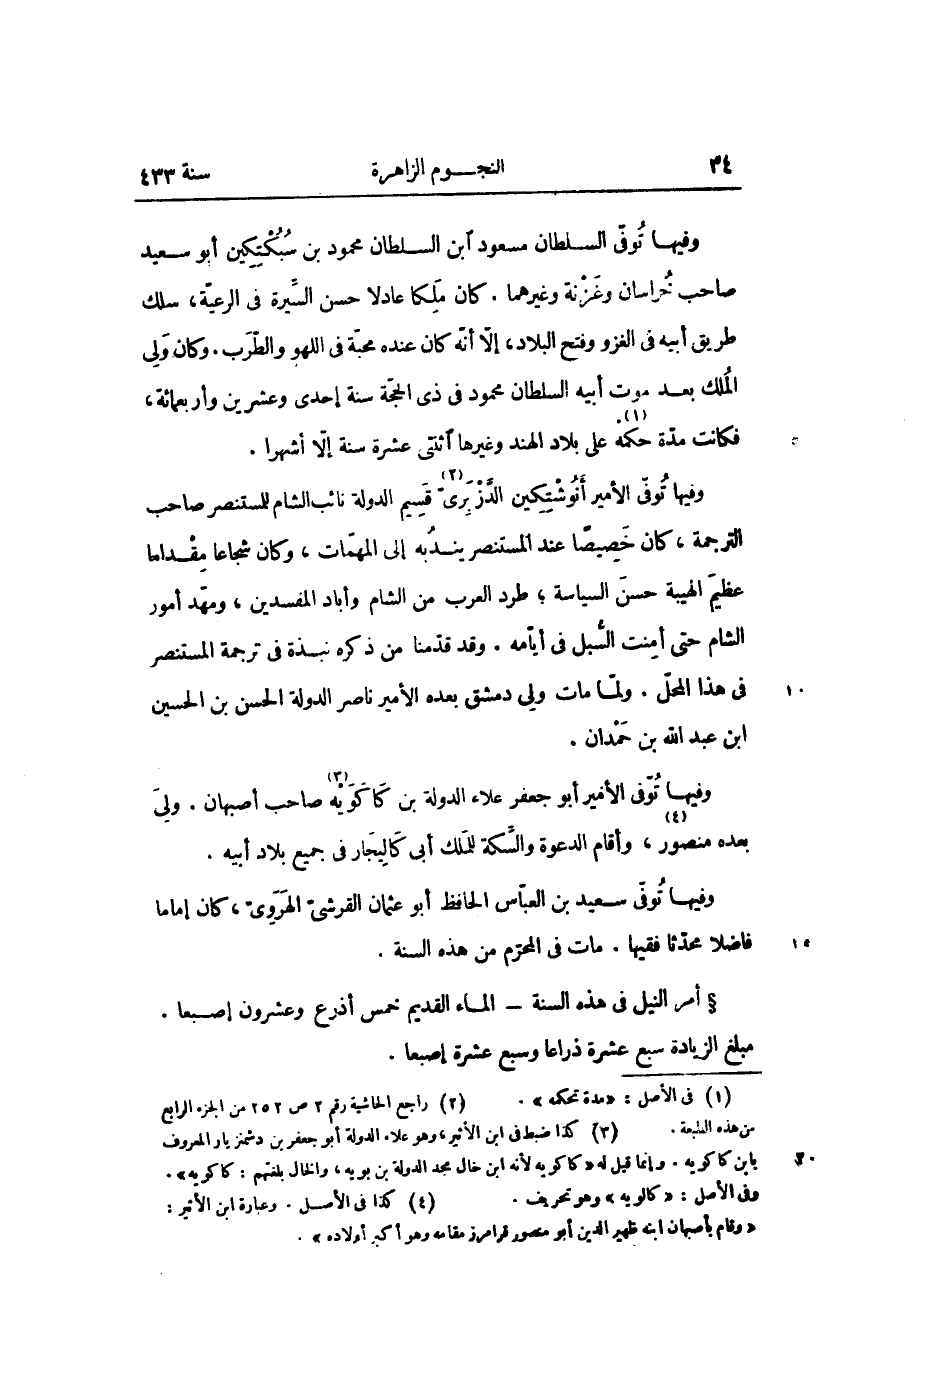 ٣٤ النجوم الزاهرة سنة ٤٣٣
وفيها تُوفّى السلطان مسعود آبن السلطان محمود بن سُبُكْتِكِين أبو سعيد
صاحب خُراسان وغَزْنة وغيرهما . كان مَلِكا عادلا حسن السِّيرة فى الرعيّة، سلك
طريق أبيه فى الغزو وفتح البلاد، إلّا أنّه كان عنده محبّة فى اللهو والطَّرَب. وكان وَلِى
المُلك بعد موت أبيه السلطان محمود فى ذى الحجّة سنة إحدى وعشرين وأربعمائة،
فكانت مدّة حكمه (١) على بلاد الهند وغيرها آثنتى عشرة سنة إلّا أشهرا .
٥
وفيها تُوفّى الأمير أَنُوشْتِكِين الدِّزْبِرىّ (٢) قَسِيم الدولة نائب الشام للمستنصر صاحب
الترجمة ، كان خَصِيصًا عند المستنصر يندُبه إلى المهمّات ، وكان شجاعا مِقْداما
عظيمَ الهيبة حسنَ السياسة ؛ طرد العرب من الشام وأباد المفسدين ، ومهّد أمور
الشام حتى أمِنت السُّبل فى أيّامه . وقد قدّمنا من ذكره نبذة فى ترجمة المستنصر
فى هذا المحلّ . ولمّا مات ولى دمشق بعده الأمير ناصر الدولة الحسن بن الحسين
١٠
ابن عبد الله بن حَمْدان .
وفيها تُوفّى الأمير أبو جعفر علاء الدولة بن كَاكَوَيْه (٣) صاحب أصبهان . ولىَ
بعده منصور (٤) ، وأقام الدعوة والسِّكة للملك أبى كَالِيجَار فى جميع بلاد أبيه .
وفيها تُوفّى سعيد بن العبّاس الحافظ أبو عثمان القرشىّ الهَرَوِىّ ، كان إماما
فاضلا محدّثا فقيها . مات فى المحرّم من هذه السنة .
١٥
§ أمر النيل فى هذه السنة – الماء القديم خمس أذرع وعشرون إصبعا .
مبلغ الزيادة سبع عشرة ذراعا وسبع عشرة إصبعا .
(١) فى الأصل : «مدة تحكمه» . (٢) راجع الحاشية رقم ٢ ص ٢٥٢ من الجزء الرابع
من هذه الطبعة . (٣) كذا ضبط فى ابن الأثير، وهو علاء الدولة أبو جعفر بن دشمنزيار المعروف
بابن كاكويه . وإنما قيل له «كاكويه لأنه ابن خال مجد الدولة بن بويه ، والخال بلغتهم : كاكويه» .
٢٠
وفى الأصل : «كالويه» وهو تحريف . (٤) كذا فى الأصل . وعبارة ابن الأثير :
«وقام بأصبهان ابنه ظهير الدين أبو منصور قرامرز مقامه وهو أكبر أولاده» .